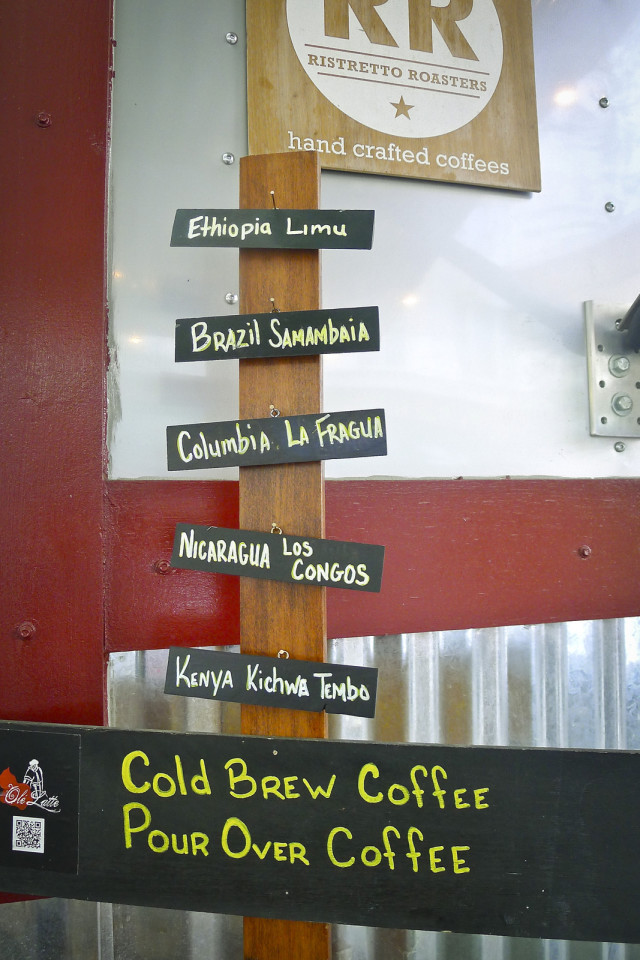 RR
RISTRETTO ROASTERS
hand crafted coffees
Ethiopia Limu
Brazil Samambaia
Columbia La Fragua
Nicaragua Los
Congos
Kenya Kichwa Tembo
Olé Latte
Cold Brew Coffee
Pour Over Coffee